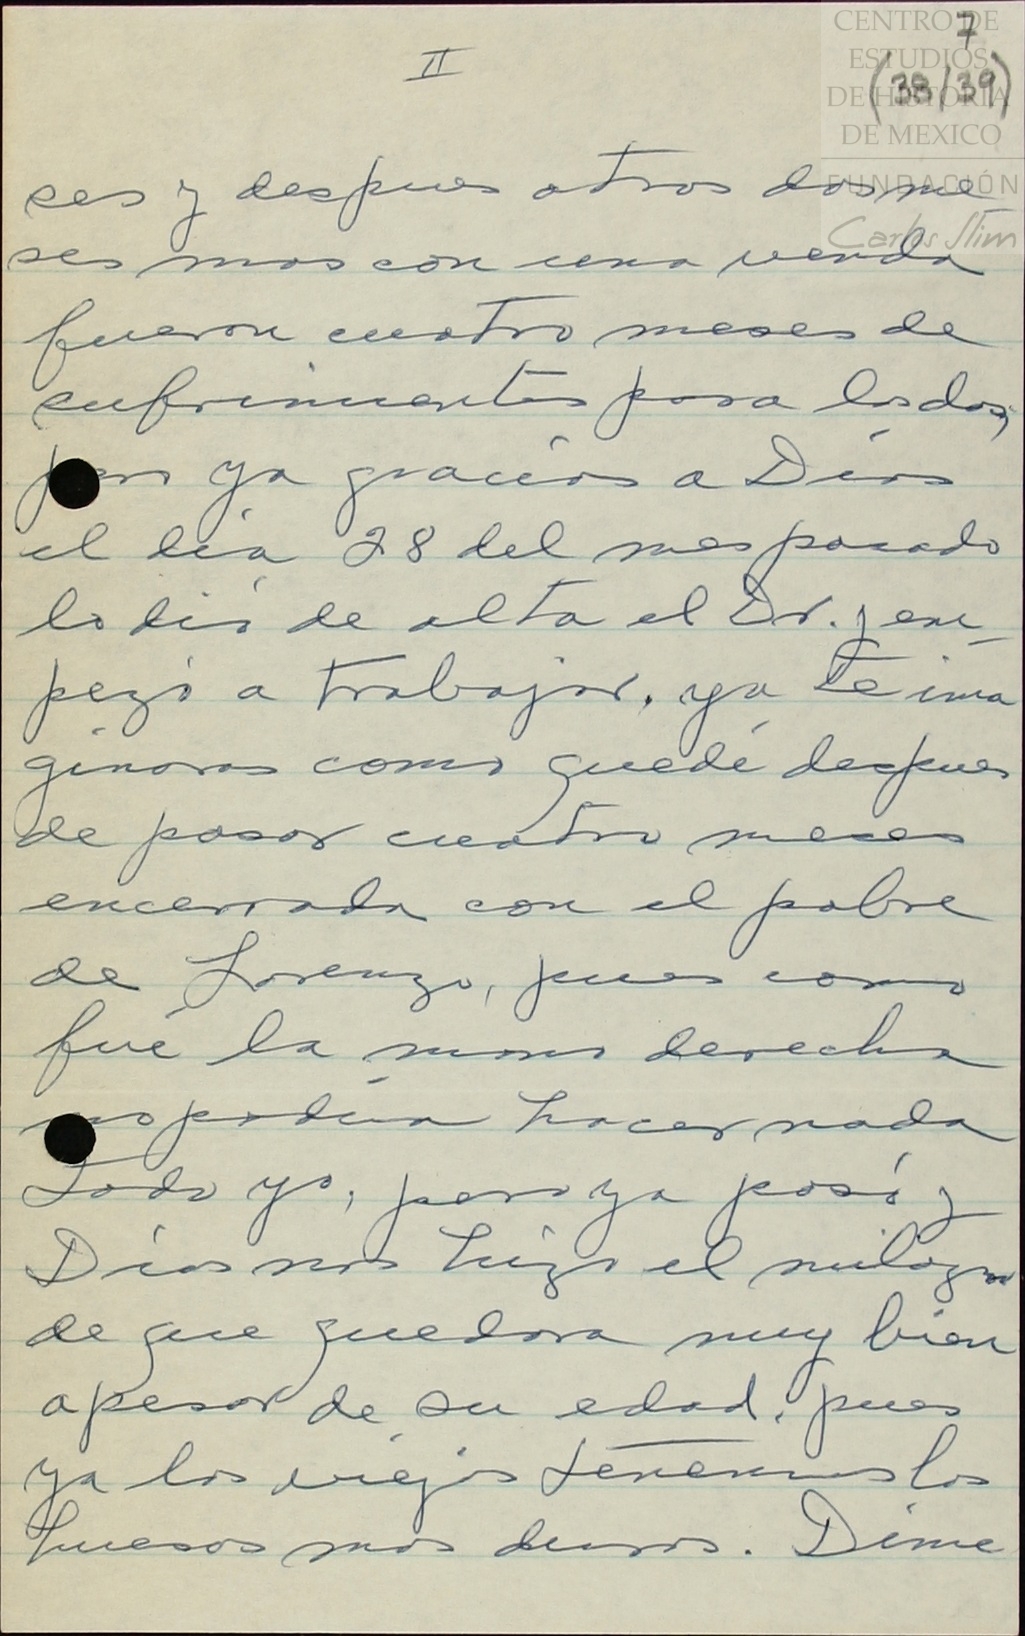 CENTRO DE
ESTUDIOS
DE HISTORIA
DE MEXICO
FUNDACIÓN
Carlos Slim
7
(38/39)
II
ses y despues otros dos me
ses mas con una venda
fueron cuatro meses de
sufrimientos para los dos,
pero ya gracias a Dios
el día 28 del mes pasado
lo dió de alta el Dr. y em_
pezó a trabajar. ya te ima
ginaras como quedé despues
de pasar cuatro meses
encerrada con el pobre
de Lorenzo, pues como
fué la mano derecha
no podía hacer nada
todo yo, pero ya pasó y
Dios nos hizo el milagro
de que quedara muy bien
apesar de su edad, pues
ya los viejos tenemos los
huesos mas duros. Dime